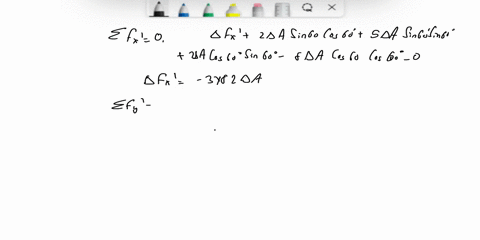 Σ Fx' = 0. ΔFx' + 2ΔA Sin60 Cos60° + 5ΔA Sin60° Sin60°
+ 2ΔA Cos60° Sin60° - 8ΔA Cos60 Cos60° = 0
ΔFx' = - 3.482 ΔA
Σ Fy' =